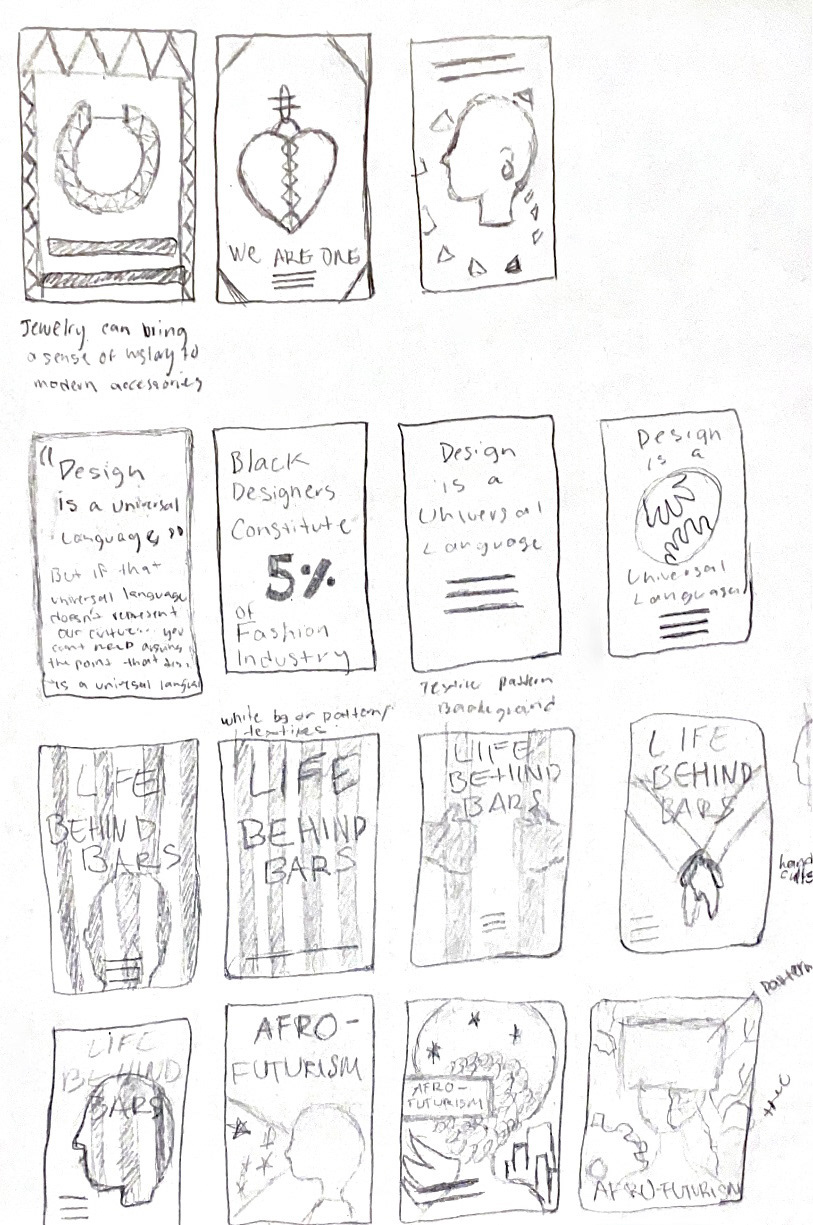 WE ARE ONE
Jewelry can bring
a sense of to
modern accessories
"Design
is a universal
Language"
But if that
universal language
doesn't represent
our culture... you
the point that
is a universal
Black
Designers
Constitute
5%
of
Fashion
Industry
Design
is a
Universal
Language
Design
is a
Universal
Language
white bg or pattern/
textiles
Textile pattern
Background
LIFE
BEHIND
BARS
LIFE
BEHIND
BARS
LIIFE
BEHIND
BARS
LIFE
BEHIND
BARS
hand
cuffs
LIFE
BEHIND
BARS
AFRO-
FUTURISM
AFRO-
FUTURISM
pattern
AFRO-FUTURISM